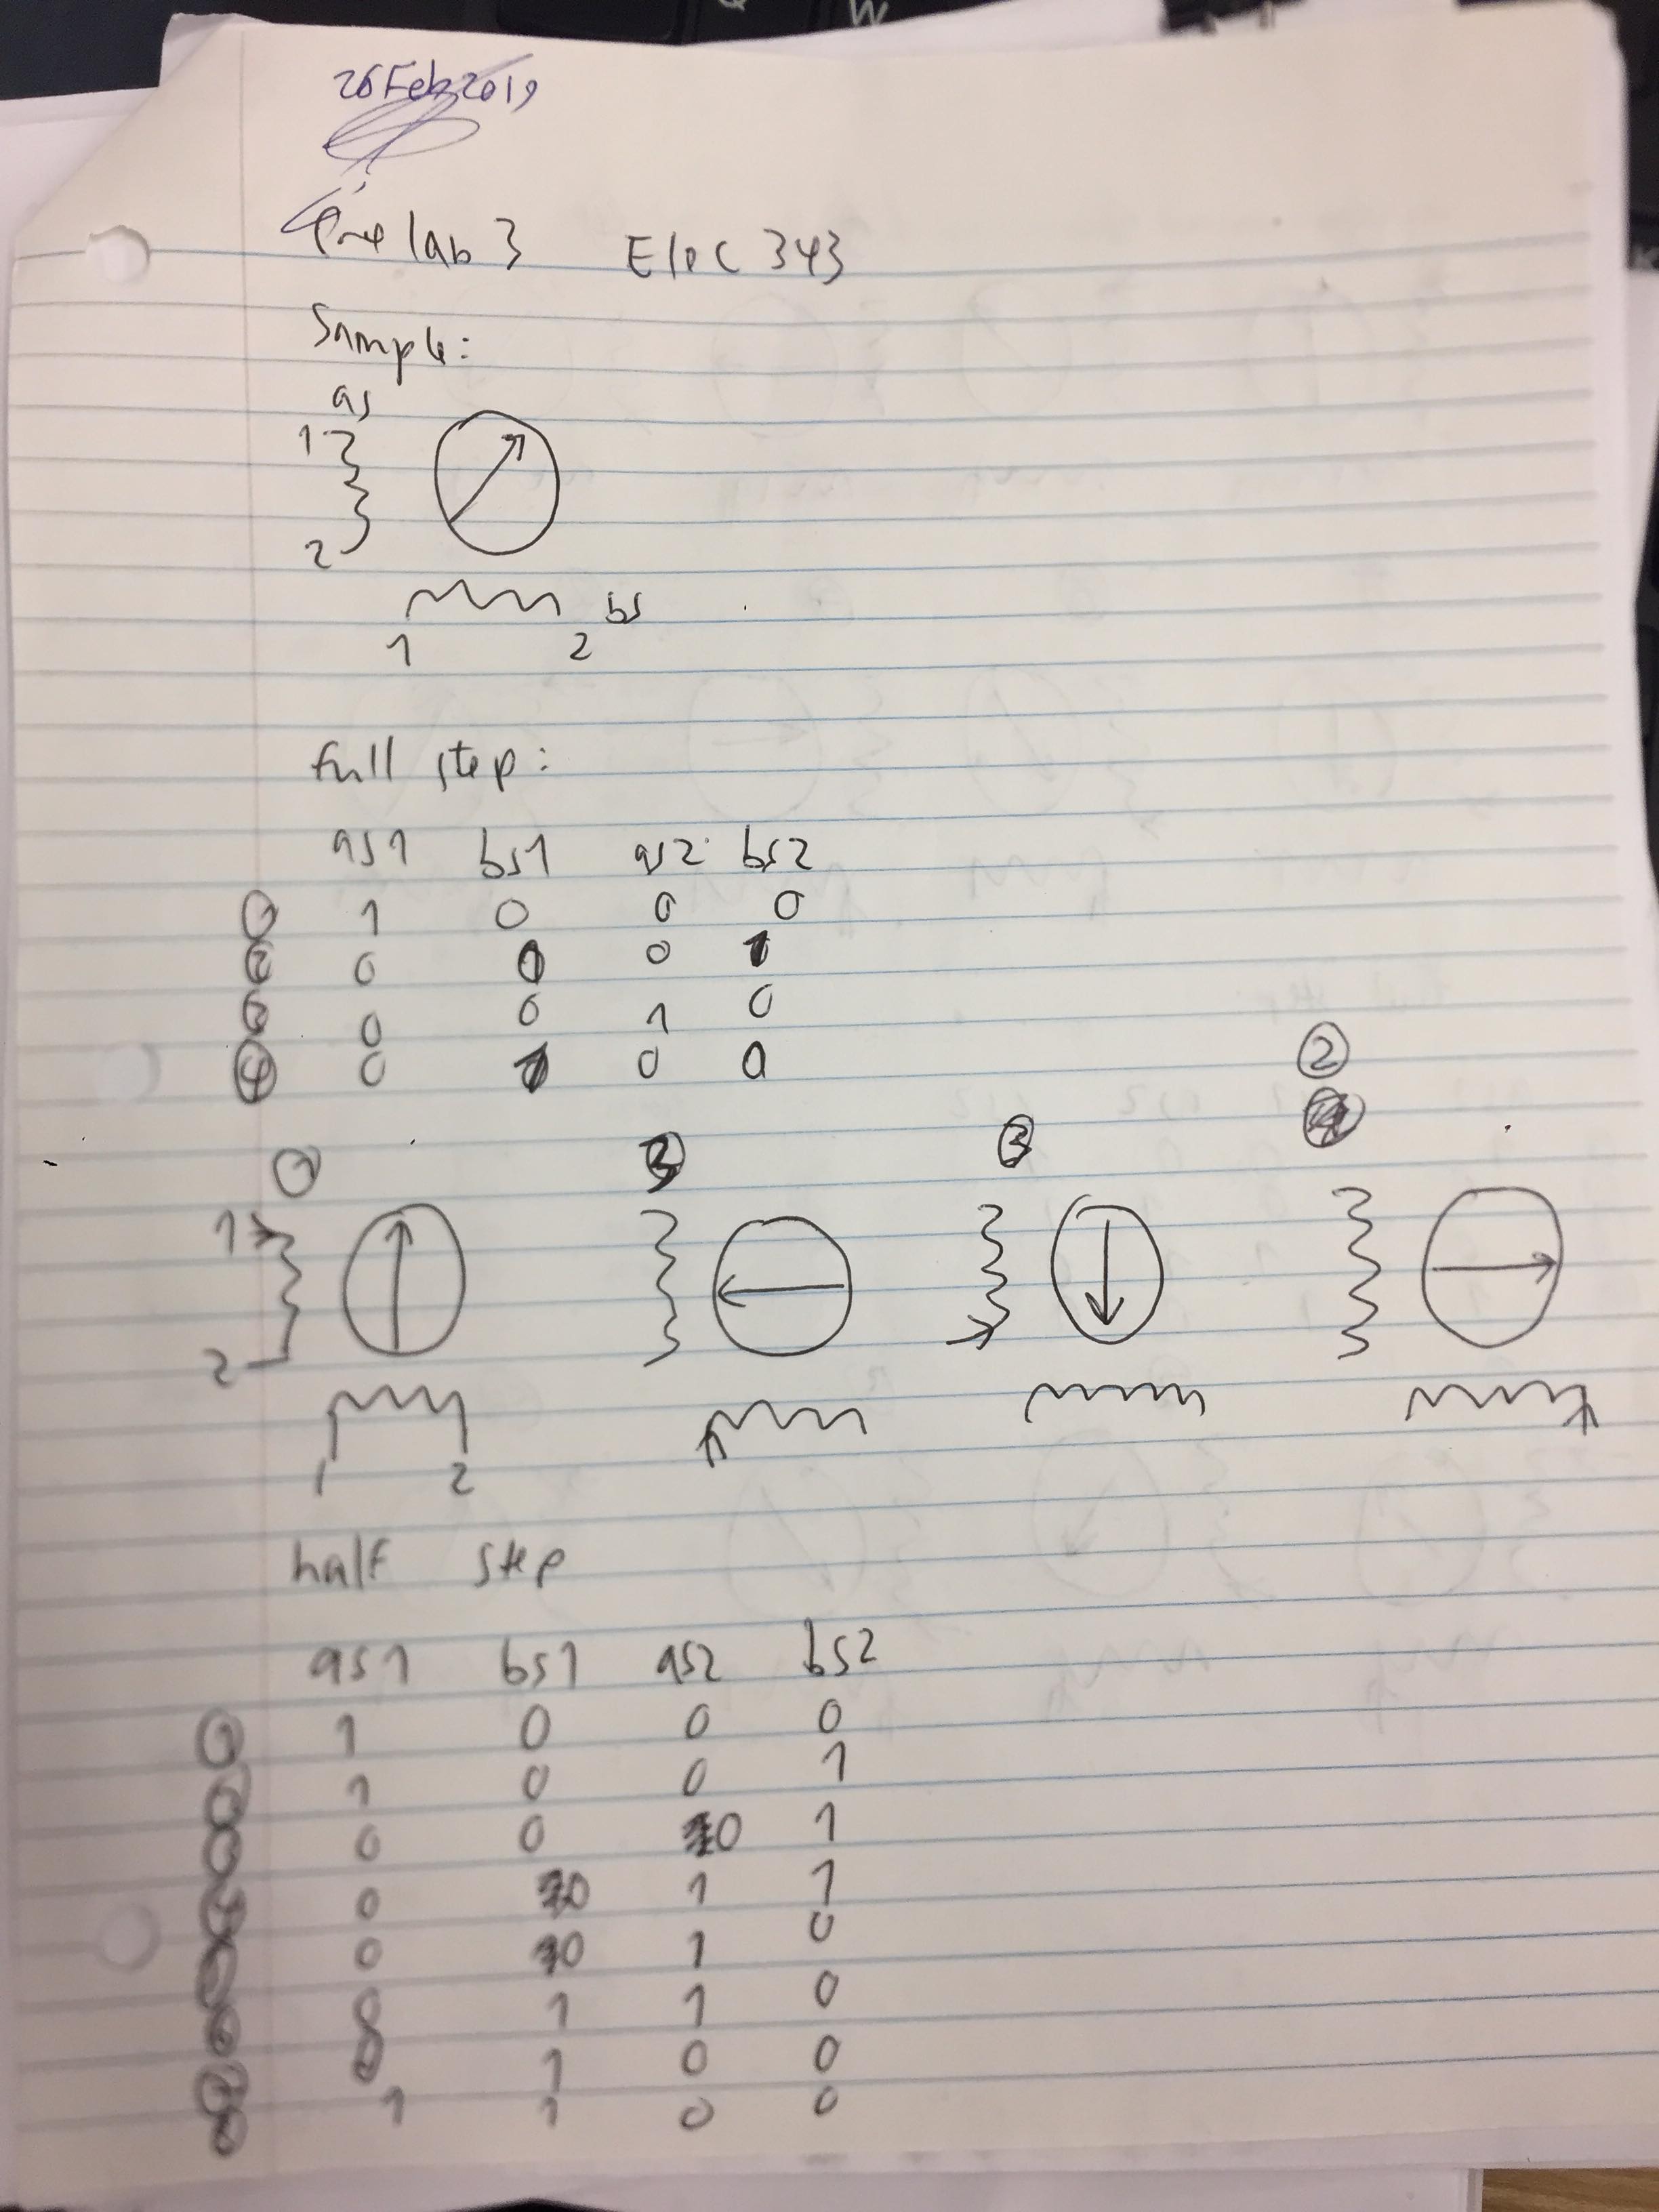 26 Feb 2019
Prelab 3 Elec 343
Sample:
as
1
2
bs
1 2
full step:
as1 bs1 as2 bs2
① 1 0 0 0
② 0 0 0 1
③ 0 0 1 0
④ 0 1 0 0
②
① ③
1
2
1 2
half step
as1 bs1 as2 bs2
① 1 0 0 0
1 0 0 1
0 0 0 1
0 0 1 1
0 0 1 0
0 1 1 0
0 1 0 0
1 1 0 0